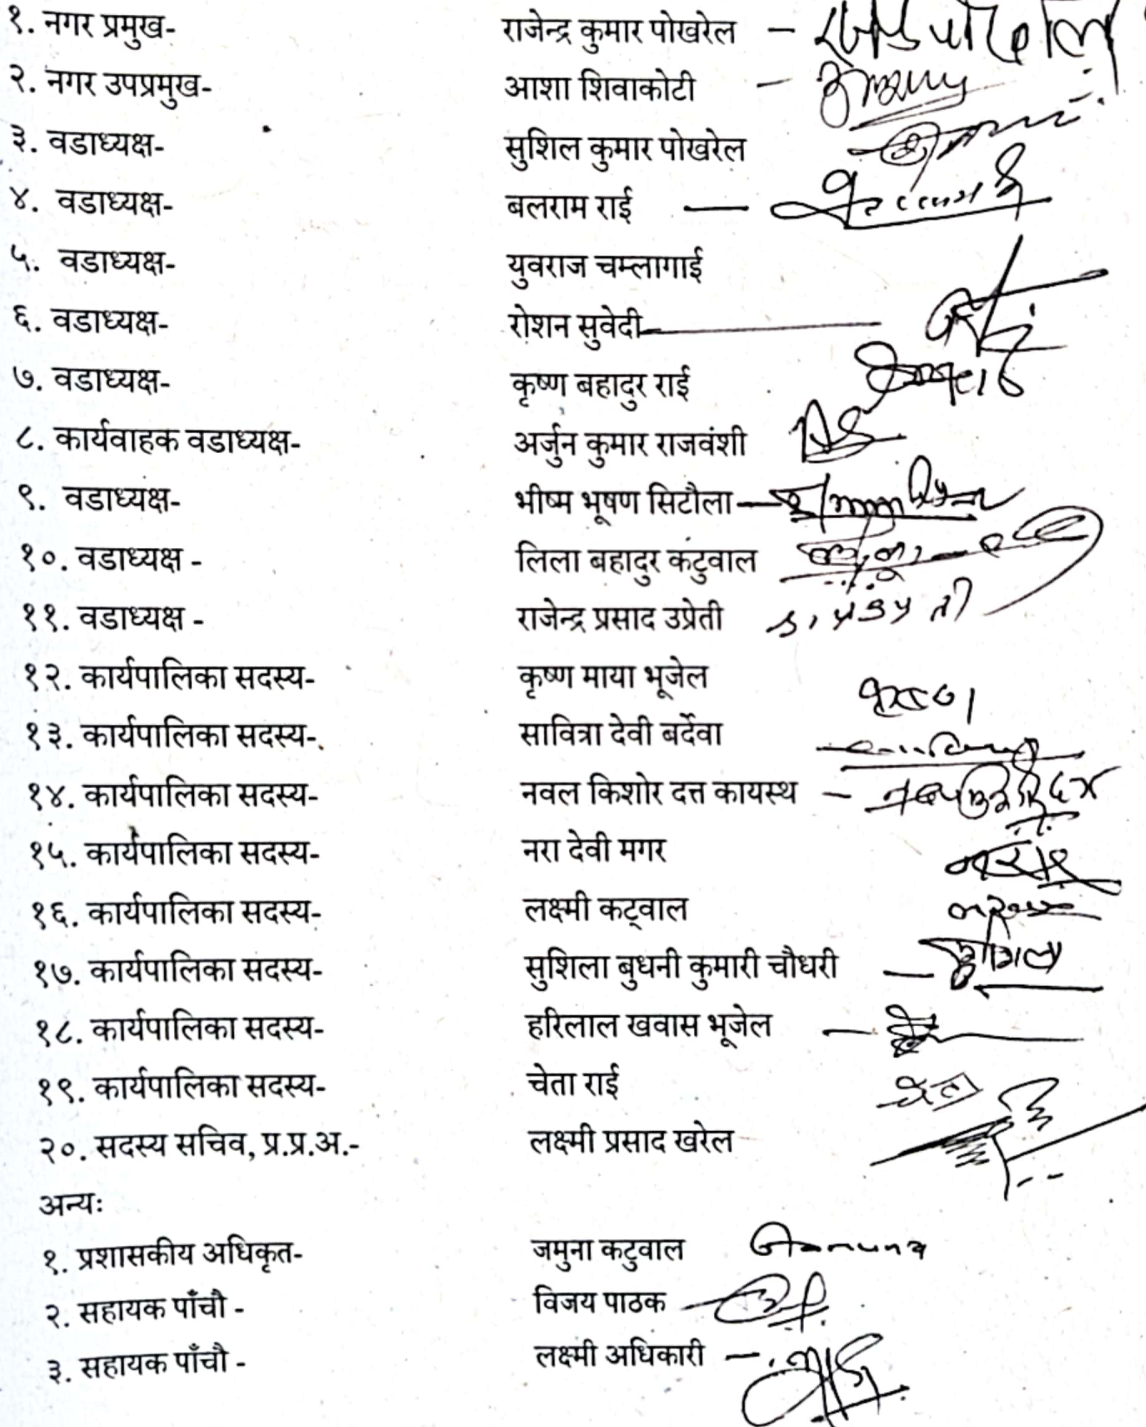 १. नगर प्रमुख- राजेन्द्र कुमार पोखरेल –
२. नगर उपप्रमुख- आशा शिवाकोटी –
३. वडाध्यक्ष- सुशिल कुमार पोखरेल
४. वडाध्यक्ष- बलराम राई —
५. वडाध्यक्ष- युवराज चम्लागाई
६. वडाध्यक्ष- रोशन सुवेदी
७. वडाध्यक्ष- कृष्ण बहादुर राई
८. कार्यवाहक वडाध्यक्ष- अर्जुन कुमार राजवंशी
९. वडाध्यक्ष- भीष्म भूषण सिटौला
१०. वडाध्यक्ष - लिला बहादुर कटुवाल
११. वडाध्यक्ष - राजेन्द्र प्रसाद उप्रेती
१२. कार्यपालिका सदस्य- कृष्ण माया भूजेल
१३. कार्यपालिका सदस्य- सावित्रा देवी बर्देवा
१४. कार्यपालिका सदस्य- नवल किशोर दत्त कायस्थ –
१५. कार्यपालिका सदस्य- नरा देवी मगर
१६. कार्यपालिका सदस्य- लक्ष्मी कट्वाल
१७. कार्यपालिका सदस्य- सुशिला बुधनी कुमारी चौधरी – सुशिला
१८. कार्यपालिका सदस्य- हरिलाल खवास भूजेल –
१९. कार्यपालिका सदस्य- चेता राई चेता
२०. सदस्य सचिव, प्र.प्र.अ.- लक्ष्मी प्रसाद खरेल
अन्यः
१. प्रशासकीय अधिकृत- जमुना कटुवाल Jamuna
२. सहायक पाँचौ - विजय पाठक
३. सहायक पाँचौ - लक्ष्मी अधिकारी –